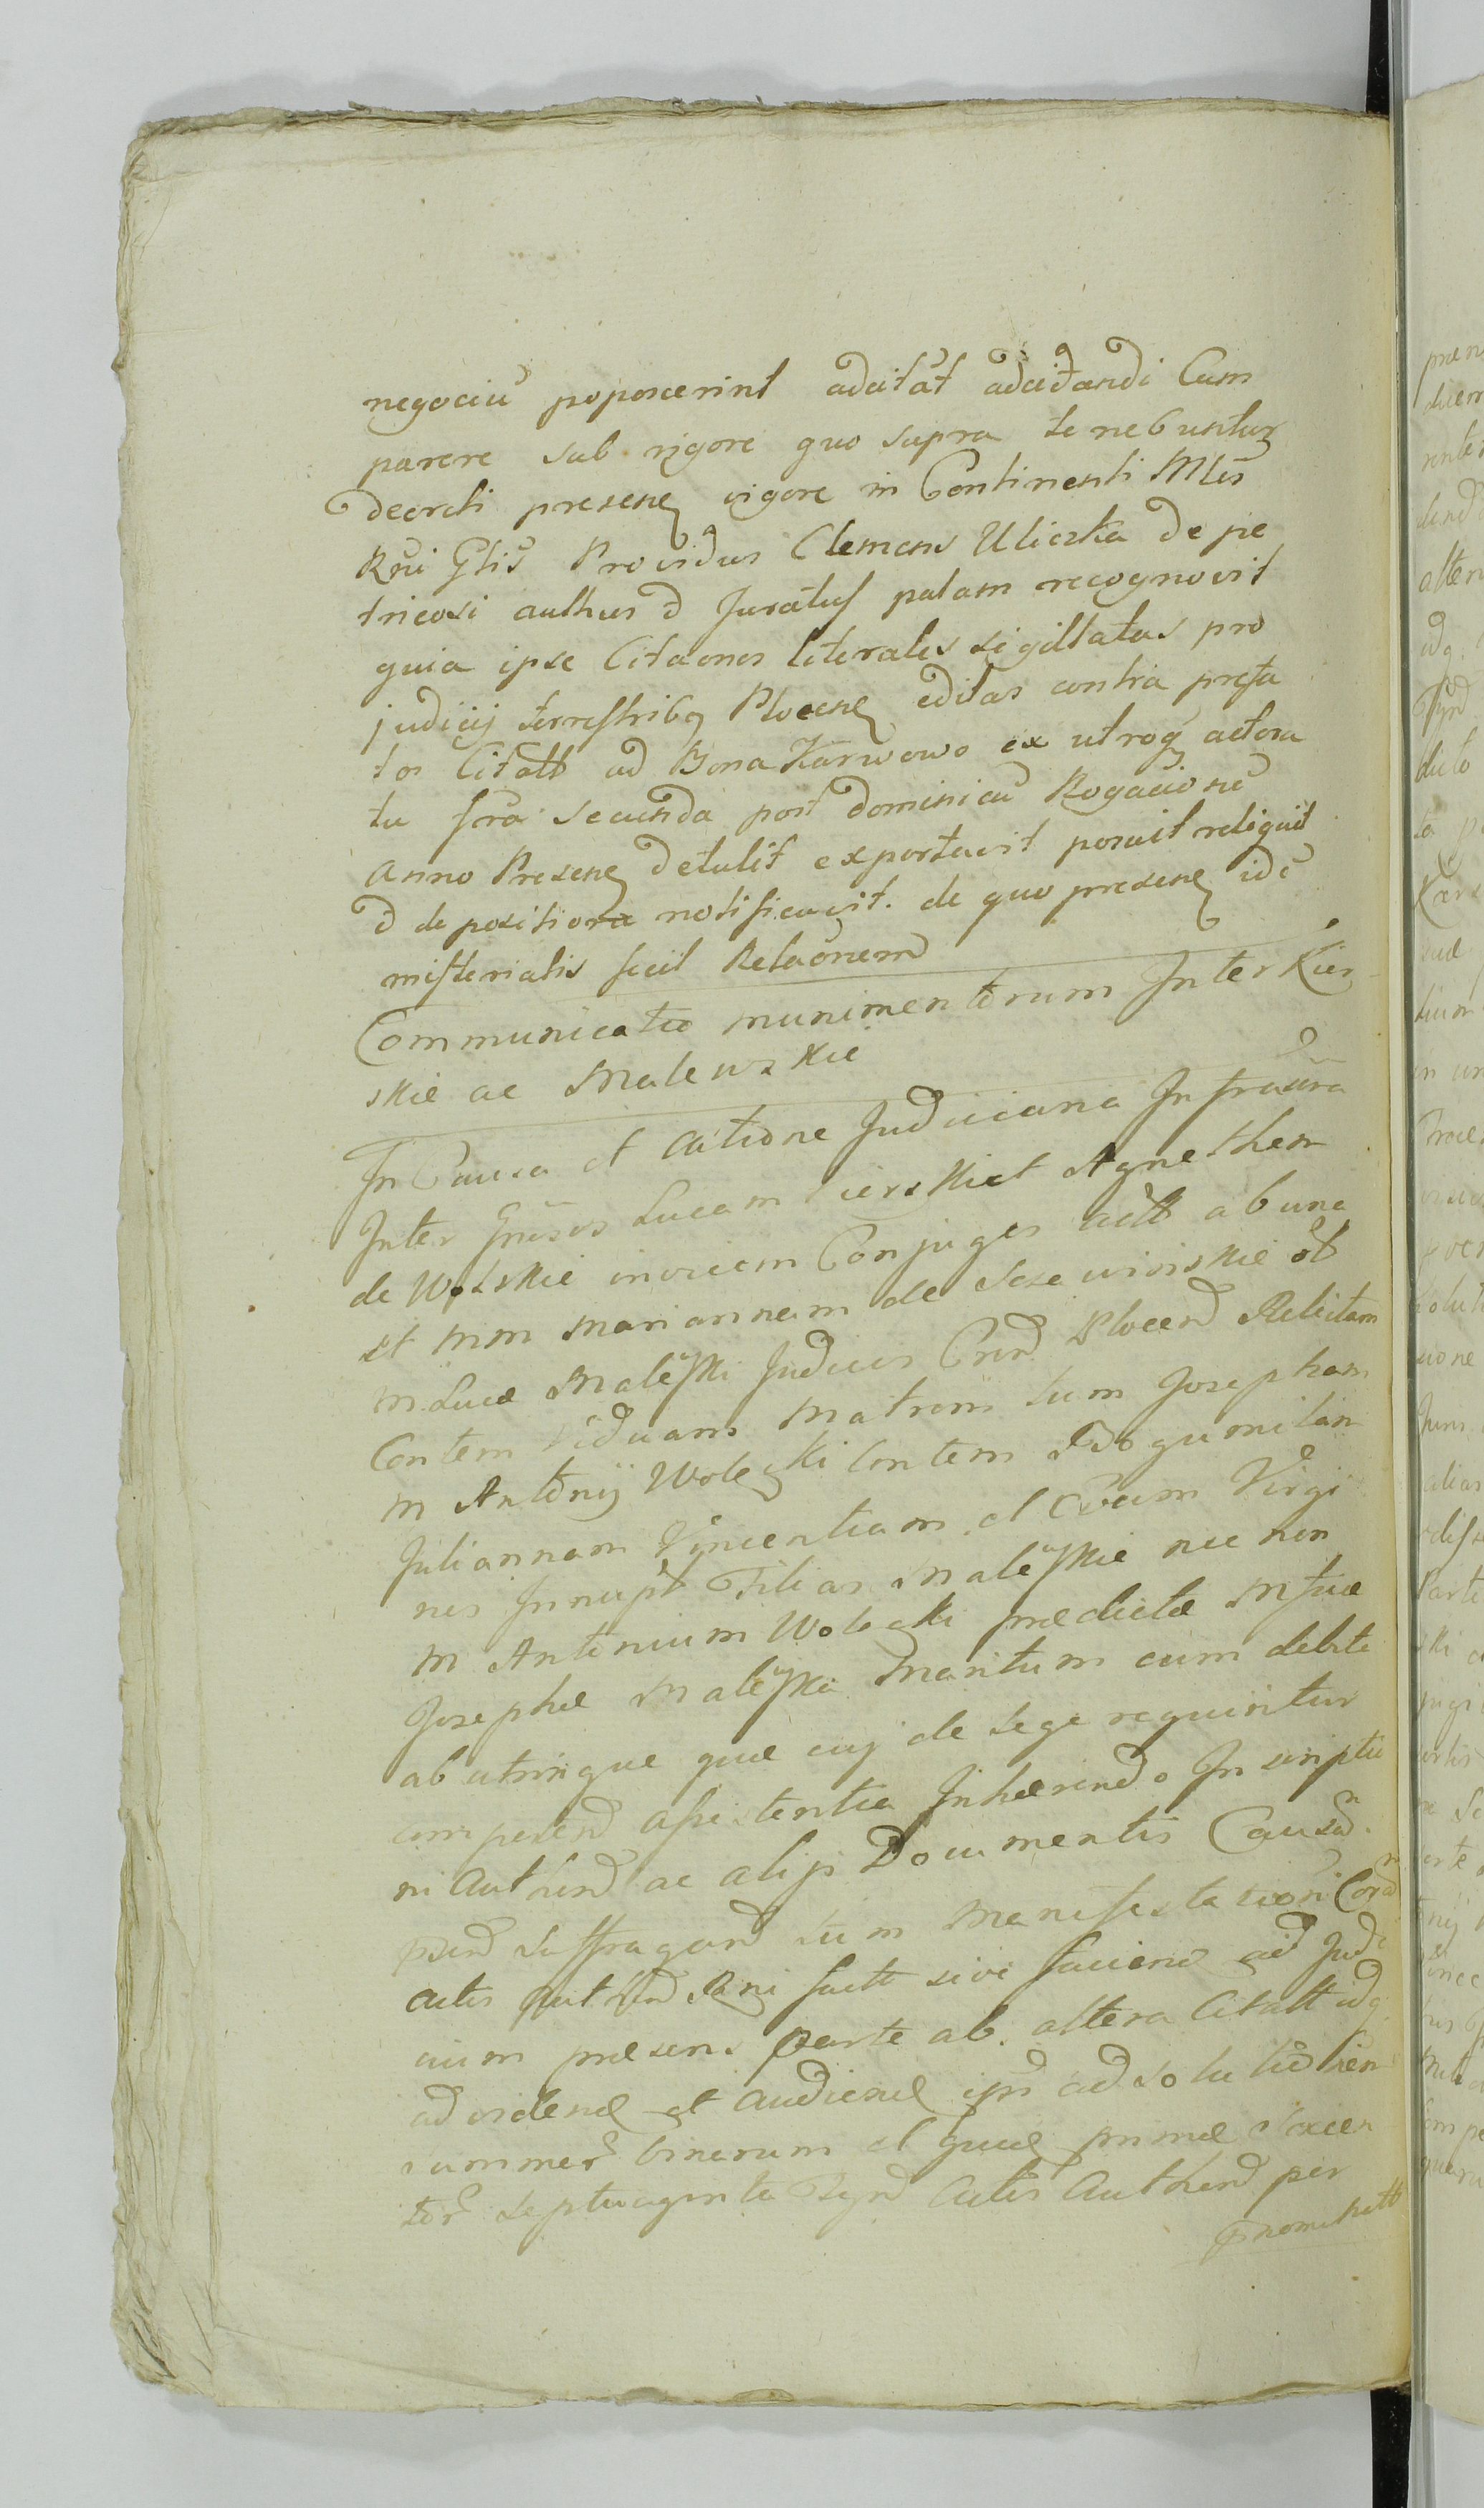 negociũ poposcerint adcitãt adcitandi Cum
parere sub rigore quo supra tenebuntur
decreti presenę vigore in Continenti Mlis
Rni Glis Providus Clemens Uliczka de pe
tricosi authus d Juratus palam recognovit
quia ipse Citaones literales sigillatas pro
judicijs terrestribą Plocenę editas contra prefa
tos Citatt ad Bona Karwowo ex utroq actora
tu fra secunda post dominicũ Rogacionũ
Anno Presenę detulit exportavit posuit reliquit
d de positiora notificavit. de quo presenę idẽ
misterialis fecit Relaõnem
Communicatio munimentorum Inter Kier
skie ac Malewskie
In Causa et Actione Judiciaria Infrascra
Inter Gnẽsos Lucam Kierski et Agnethem
de Wolskie invicem Conjuges actt ab una
et Mm Mariannam de ott
M. Lucæ Malewski Judicis Plocend Relictam
Contem Viduam Matrem tum Josepham
M Antonij Woleęki Contem Bogumilam
Juliannam Vincentiam et Evam Virgi
nes Innupt Filias Malewskie nec non
M Antonium Woleęki prædictæ Mfcæ
Josephæ Malewska Maritum cum debita
ab utrinque quæ cuj de lege requiritur
comperend assistentia Inhærendo Inscriptio
ni Authend ac alijs Documentis Causæ
psend suffragand tum Manifestationi Coram
actis Authend Rni factt sive faciend aid Judi
cium præsens Parte ab. altera Citatt idq
ad videnę et audienę ipd ad solutionem
summar binarum et Quæ primæ Noccen
tor septuaginta Actis Authend per
prnominatt